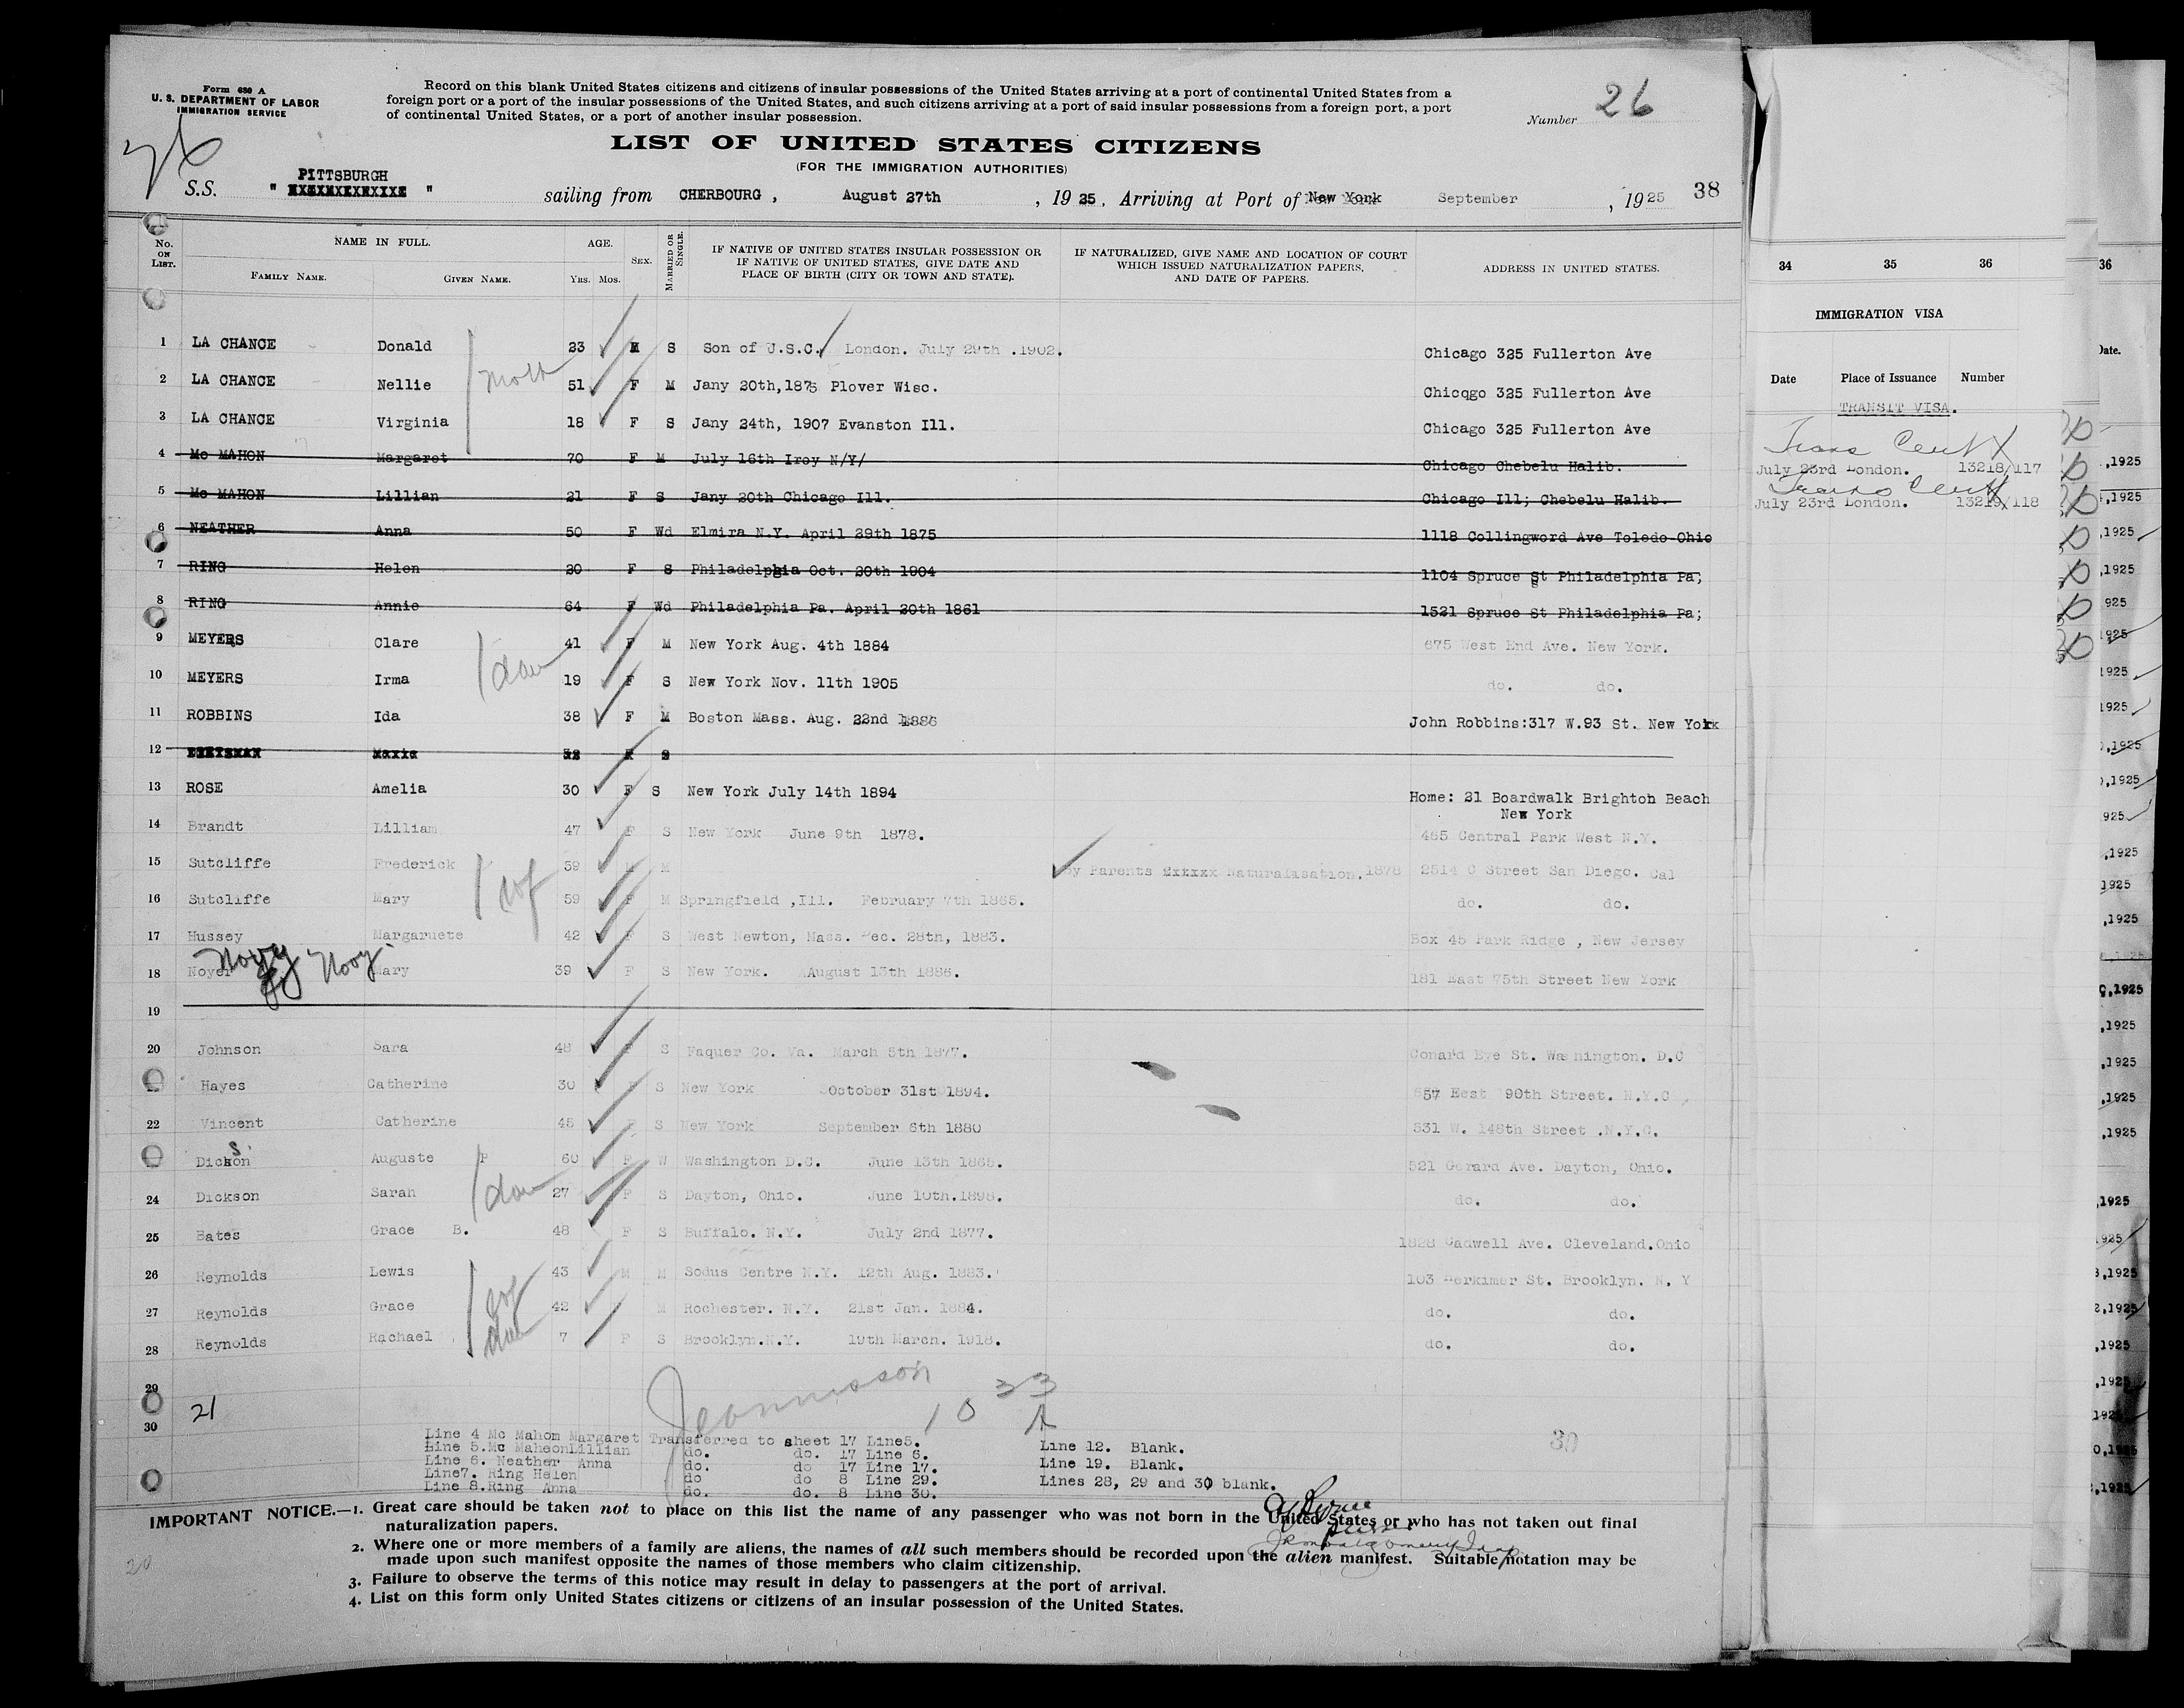 Form 630 A
U. S. DEPARTMENT OF LABOR
IMMIGRATION SERVICE
Record on this blank United States citizens and citizens of insular possessions of the United States arriving at a port of continental United States from a
foreign port or a port of the insular possessions of the United States, and such citizens arriving at a port of said insular possessions from a foreign port, a port
of continental United States, or a port of another insular possession.
Number 26
LIST OF UNITED STATES CITIZENS
(FOR THE IMMIGRATION AUTHORITIES)
S.S. " PITTSBURGH " sailing from CHERBOURG , August 27th , 19 25 , Arriving at Port of New York September , 19 25 38
No. ON LIST. NAME IN FULL. AGE. SEX. MARRIED OR SINGLE. IF NATIVE OF UNITED STATES INSULAR POSSESSION OR IF NATIVE OF UNITED STATES, GIVE DATE AND PLACE OF BIRTH (CITY OR TOWN AND STATE). IF NATURALIZED, GIVE NAME AND LOCATION OF COURT WHICH ISSUED NATURALIZATION PAPERS, AND DATE OF PAPERS. ADDRESS IN UNITED STATES.
FAMILY NAME. GIVEN NAME. YRS. MOS.
1 LA CHANCE Donald 23 M S Son of U.S.C. London. July 29th .1902. Chicago 325 Fullerton Ave
2 LA CHANCE Nellie moth 51 F M Jany 20th,1875 Plover Wisc. Chicqgo 325 Fullerton Ave
3 LA CHANCE Virginia 18 F S Jany 24th, 1907 Evanston Ill. Chicago 325 Fullerton Ave
4 Mc MAHON Margaret 70 F M July 16th Iroy N/Y/ Chicago Chebelu Halib.
5 Mc MAHON Lillian 21 F S Jany 20th Chicago Ill. Chicago Ill; Chebelu Halib.
6 NEATHER Anna 50 F Wd Elmira N.Y. April 29th 1875 1118 Collingword Ave Toledo-Ohio
7 RING Helen 20 F S Philadelphia Oct. 20th 1904 1104 Spruce St Philadelphia Pa;
8 RING Annie 64 F Wd Philadelphia Pa. April 20th 1861 1521 Spruce St Philadelphia Pa;
9 MEYERS Clare 41 F M New York Aug. 4th 1884 675 West End Ave. New York.
10 MEYERS Irma dau 19 F S New York Nov. 11th 1905 do. do.
11 ROBBINS Ida 38 F M Boston Mass. Aug. 22nd 1886 John Robbins:317 W.93 St. New York
12 S
13 ROSE Amelia 30 F S New York July 14th 1894 Home: 21 Boardwalk Brighton Beach
New York
14 Brandt Lilliam 47 F S New York June 9th 1878. 465 Central Park West N.Y.
15 Sutcliffe Frederick 59 M M By Parents Naturalisation,1878 2514 C Street San Diego. Cal
16 Sutcliffe Mary wf 59 F M Springfield ,Ill. February 7th 1865. do. do.
17 Hussey Margaruete 42 F S West Newton, Mass. Dec. 28th, 1883. Box 45 Park Ridge , New Jersey
Nooy
18 Noyer Mary 39 F S New York. August 13th 1886. 181 East 75th Street New York
19
20 Johnson Sara 48 F S Faquer Co. Va. March 5th 1877. Conard Eye St. Washington. D.C
Hayes Catherine 30 F S New York October 31st 1894. 657 East 90th Street. N.Y.C
22 Vincent Catherine 45 F S New York September 6th 1880 531 W. 148th Street .N.Y.C.
Dickson Auguste P 60 F W Washington D.C. June 13th 1865. 521 Gerard Ave. Dayton, Ohio.
24 Dickson Sarah dau 27 F S Dayton, Ohio. June 10th.1898. do. do.
25 Bates Grace B. 48 F S Buffalo. N.Y. July 2nd 1877. 1828 Cadwell Ave. Cleveland.Ohio
26 Reynolds Lewis 43 M M Sodus Centre N.Y. 12th Aug. 1883. 103 Herkimer St. Brooklyn. N. Y
27 Reynolds Grace wf 42 M Rochester. N.Y. 21st Jan. 1884. do. do.
28 Reynolds Rachael dau 7 F S Brooklyn.N.Y. 19th March. 1918. do. do.
29
21
30
10 33
30
Line 4 Mc Mahom Margaret Transferred to sheet 17 Line5. Line 12. Blank.
Line 5.Mc MaheonLillian do. do. 17 Line 6. Line 19. Blank.
Line 6. Neather Anna do. do 17 Line 17.
Line7. Ring Helen do do 8 Line 29. Lines 28, 29 and 30 blank.
Line 8.Ring Anna do. do. 8 Line 30.
IMPORTANT NOTICE.—1. Great care should be taken not to place on this list the name of any passenger who was not born in the United States or who has not taken out final
naturalization papers.
2. Where one or more members of a family are aliens, the names of all such members should be recorded upon the alien manifest. Suitable notation may be
made upon such manifest opposite the names of those members who claim citizenship.
3. Failure to observe the terms of this notice may result in delay to passengers at the port of arrival.
4. List on this form only United States citizens or citizens of an insular possession of the United States.
34 35 36
IMMIGRATION VISA
Date Place of Issuance Number
TRANSIT VISA.
Trans Cert
July 23rd London. 13218/117
Trans Cert
July 23rd London. 13219/118
36
Date.
,1925
,1925
,1925
,1925
925
1925
1925
1925
,1925
,1925
925
,1925
1925
,1925
,1925
,1925
,1925
,1925
,1925
1925
925
,1925
,1925
,1925